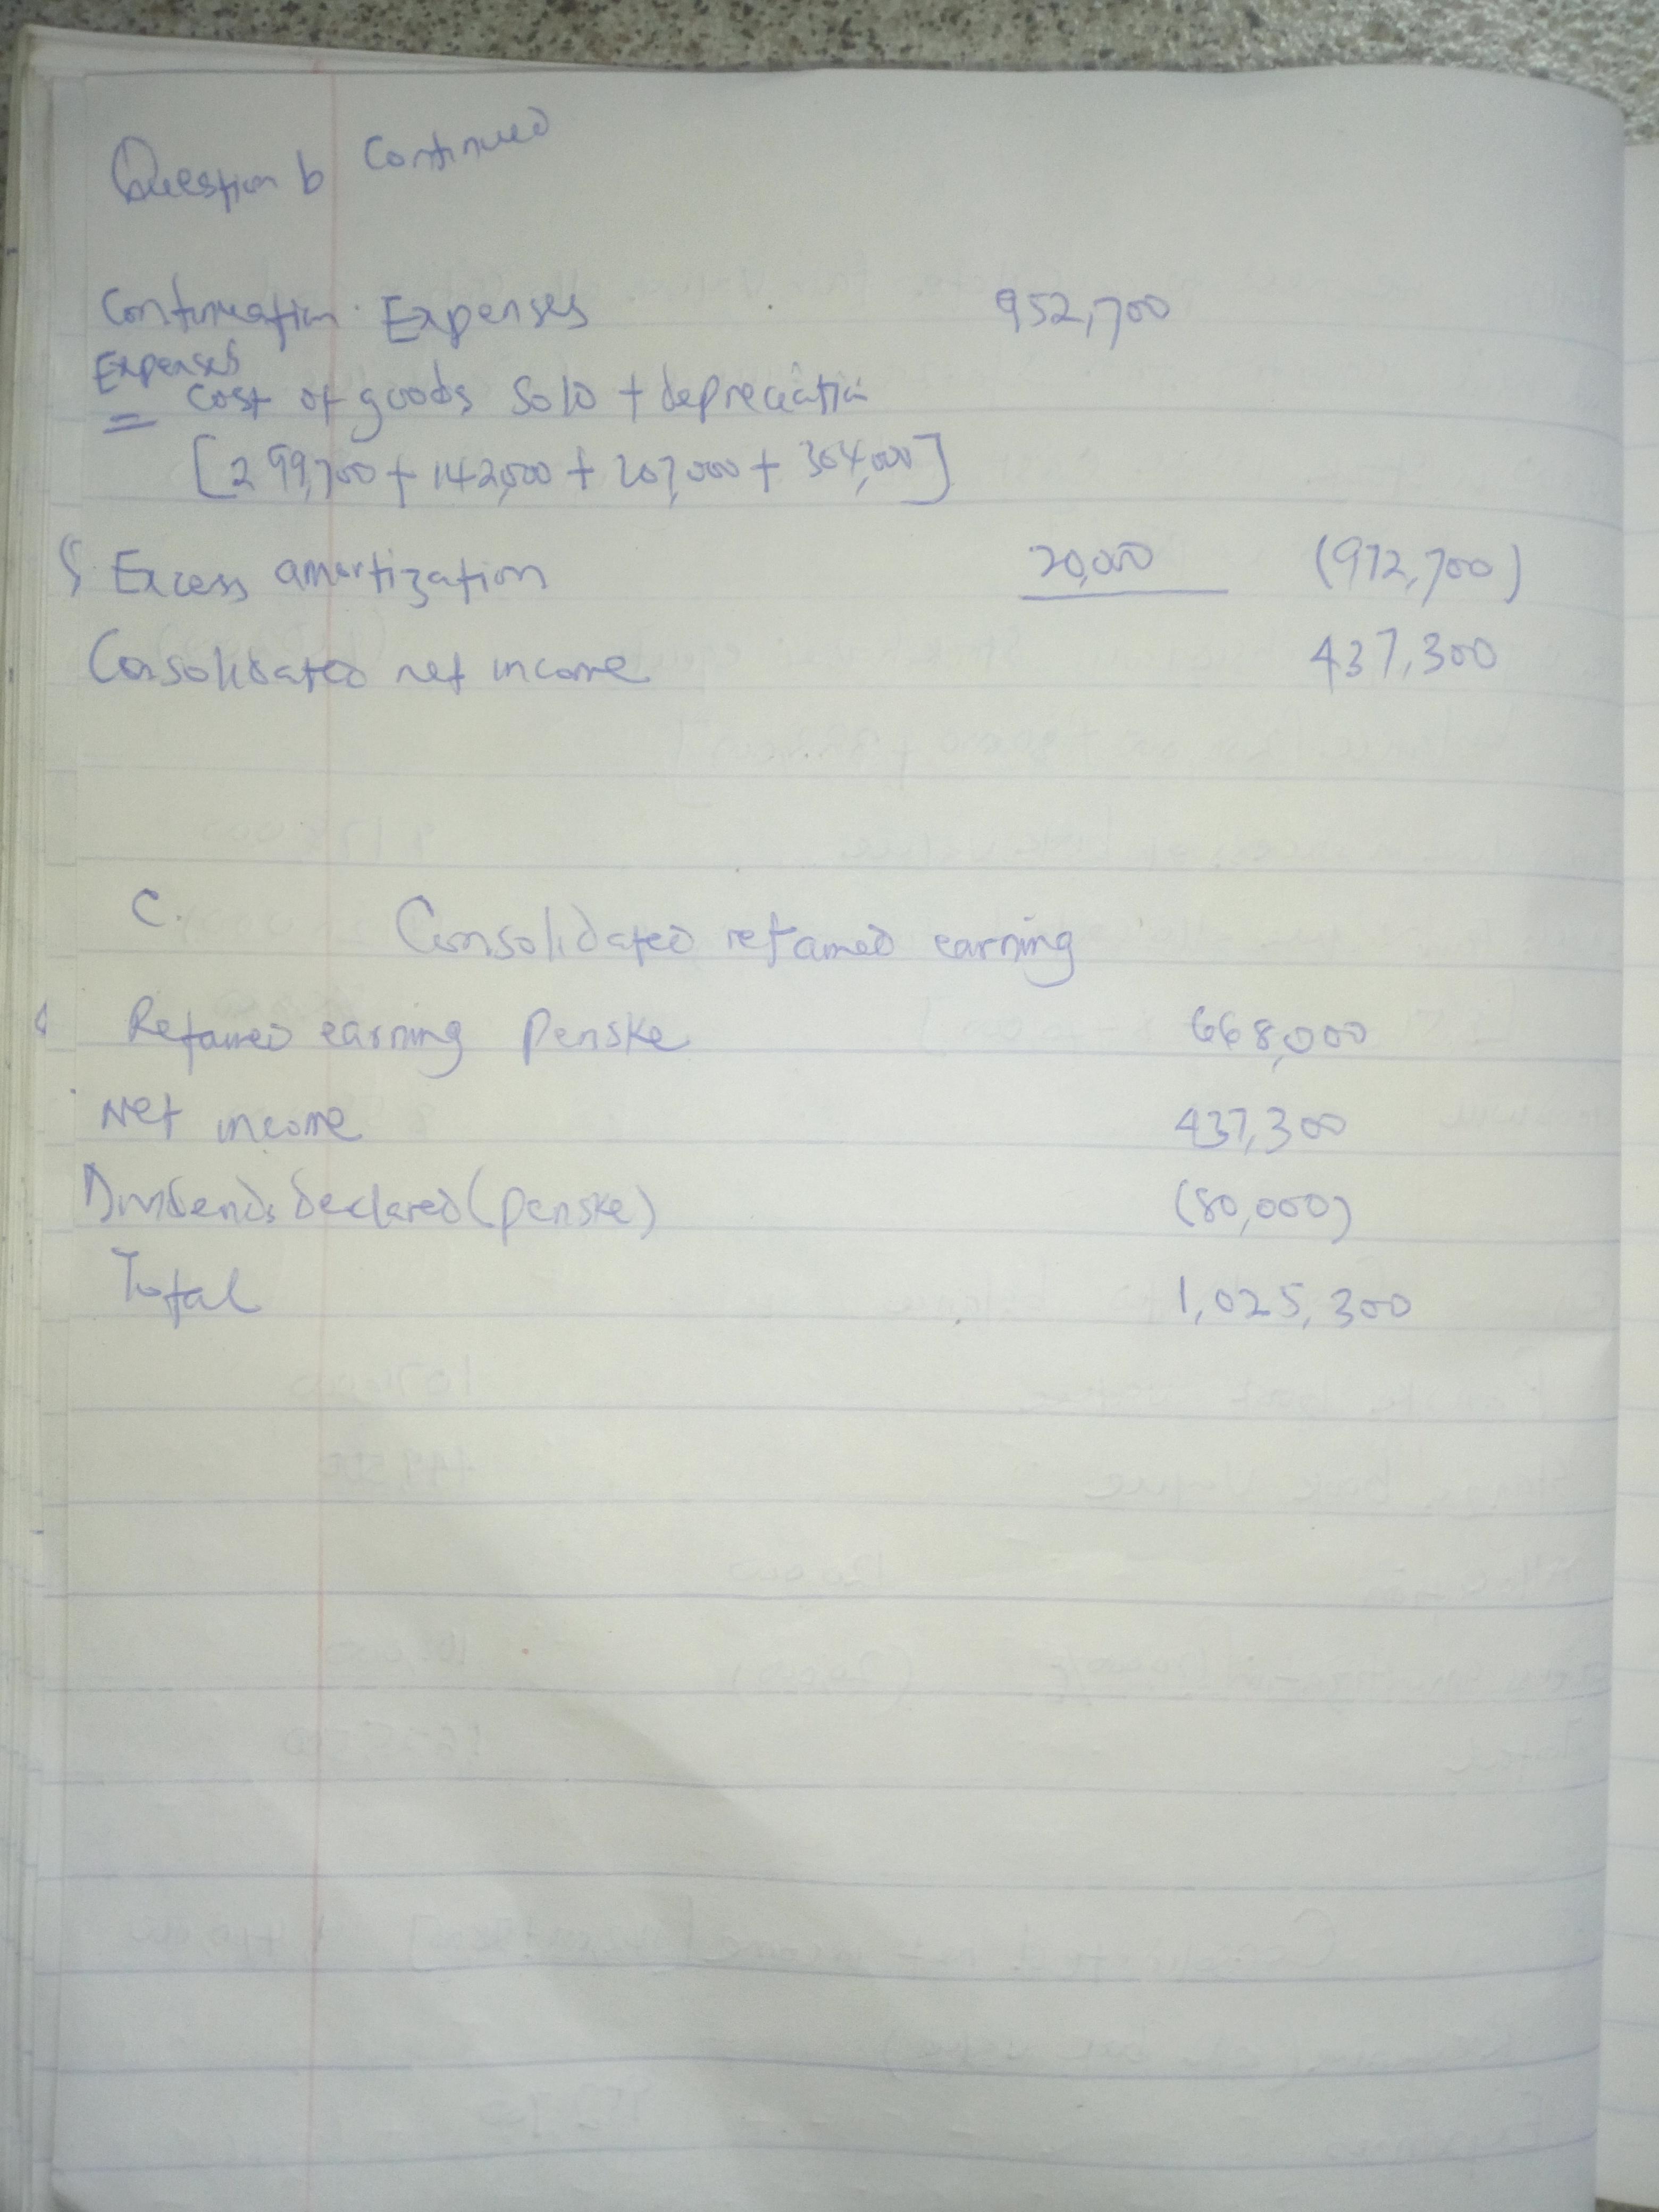 Question b Continued
Continuation Expenses 952,700
Expenses
= Cost of goods Sold + depreciation
[299,700 + 142,000 + 207,000 + 304,000]
Excess amortization 20,000 (972,700)
Consolidated net income 437,300
C. Consolidated retained earning
Retained earning Penske 668,000
Net income 437,300
Dividends declared (penske) (80,000)
Total 1,025,300